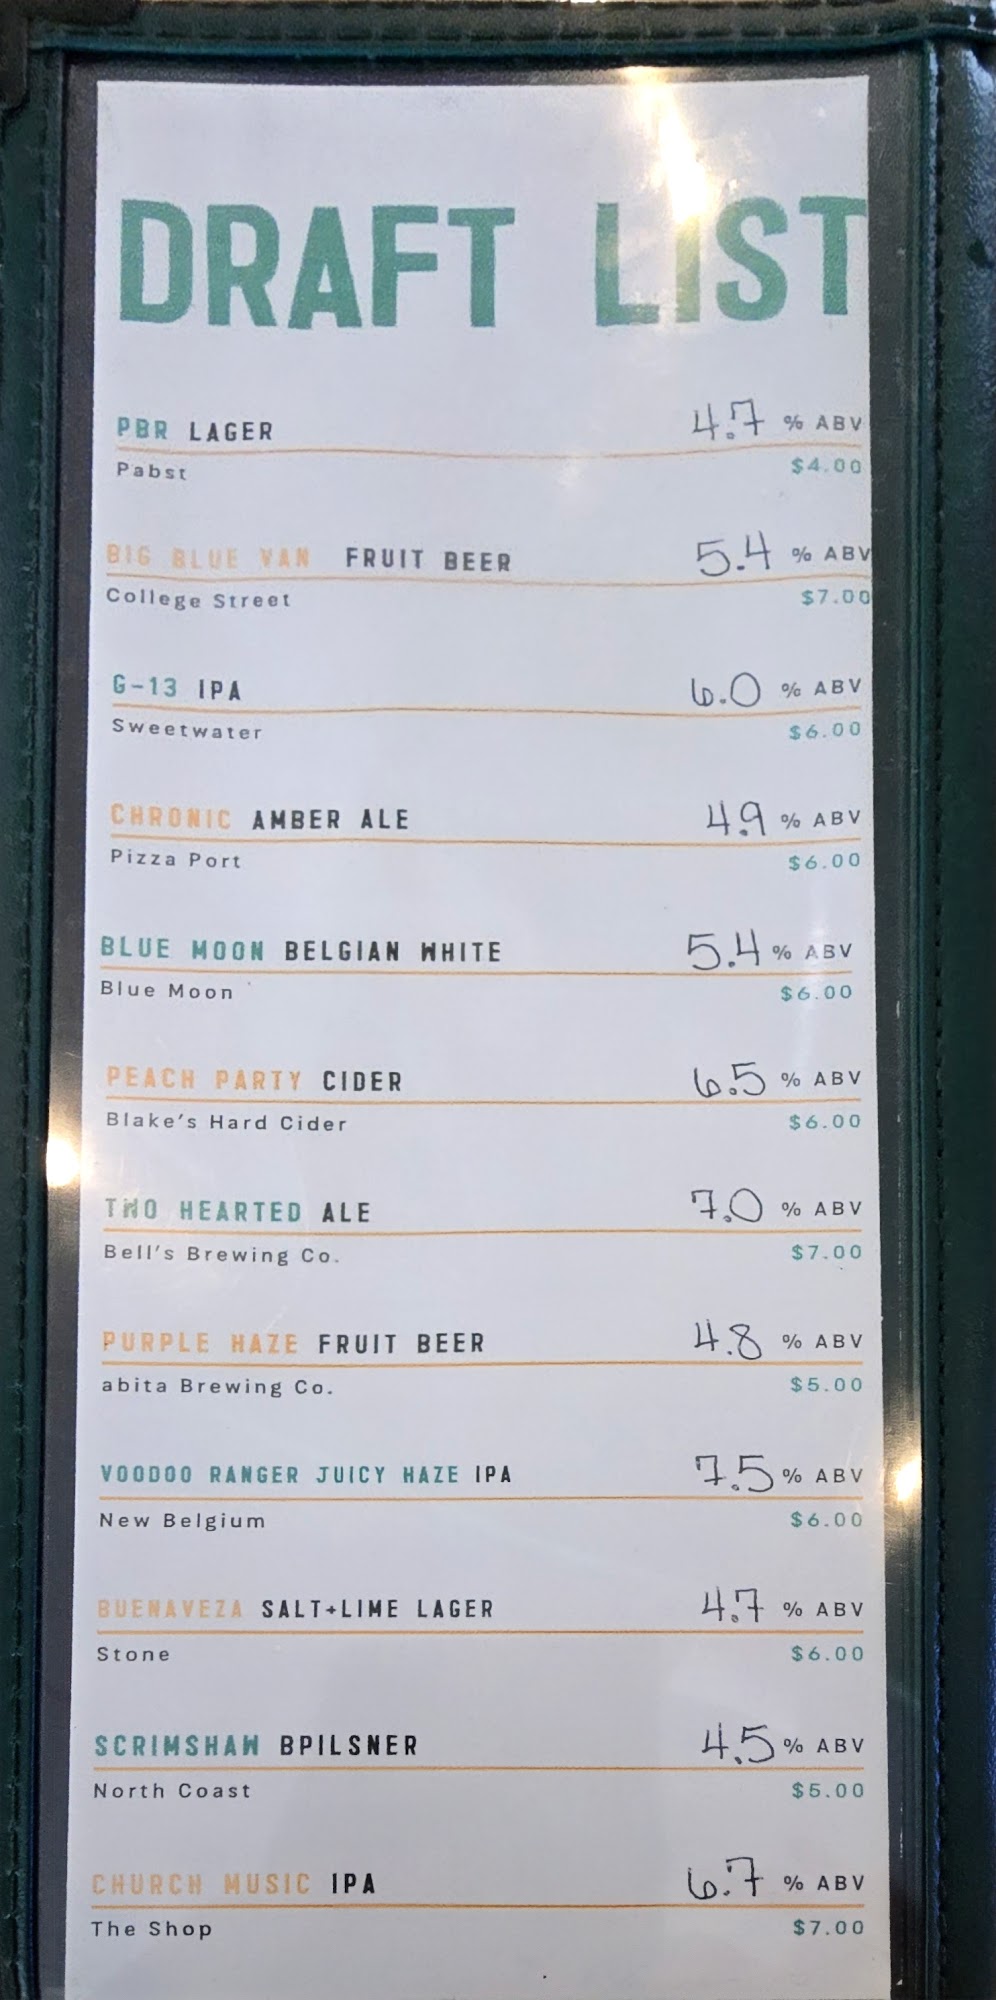 DRAFT LIST
PBR LAGER 4.7 % ABV
Pabst $4.00
BIG BLUE VAN FRUIT BEER 5.4 % ABV
College Street $7.00
G-13 IPA 6.0 % ABV
Sweetwater $6.00
CHRONIC AMBER ALE 4.9 % ABV
Pizza Port $6.00
BLUE MOON BELGIAN WHITE 5.4 % ABV
Blue Moon $6.00
PEACH PARTY CIDER 6.5 % ABV
Blake's Hard Cider $6.00
TWO HEARTED ALE 7.0 % ABV
Bell's Brewing Co. $7.00
PURPLE HAZE FRUIT BEER 4.8 % ABV
abita Brewing Co. $5.00
VOODOO RANGER JUICY HAZE IPA 7.5 % ABV
New Belgium $6.00
BUENAVEZA SALT+LIME LAGER 4.7 % ABV
Stone $6.00
SCRIMSHAW BPILSNER 4.5 % ABV
North Coast $5.00
CHURCH MUSIC IPA 6.7 % ABV
The Shop $7.00